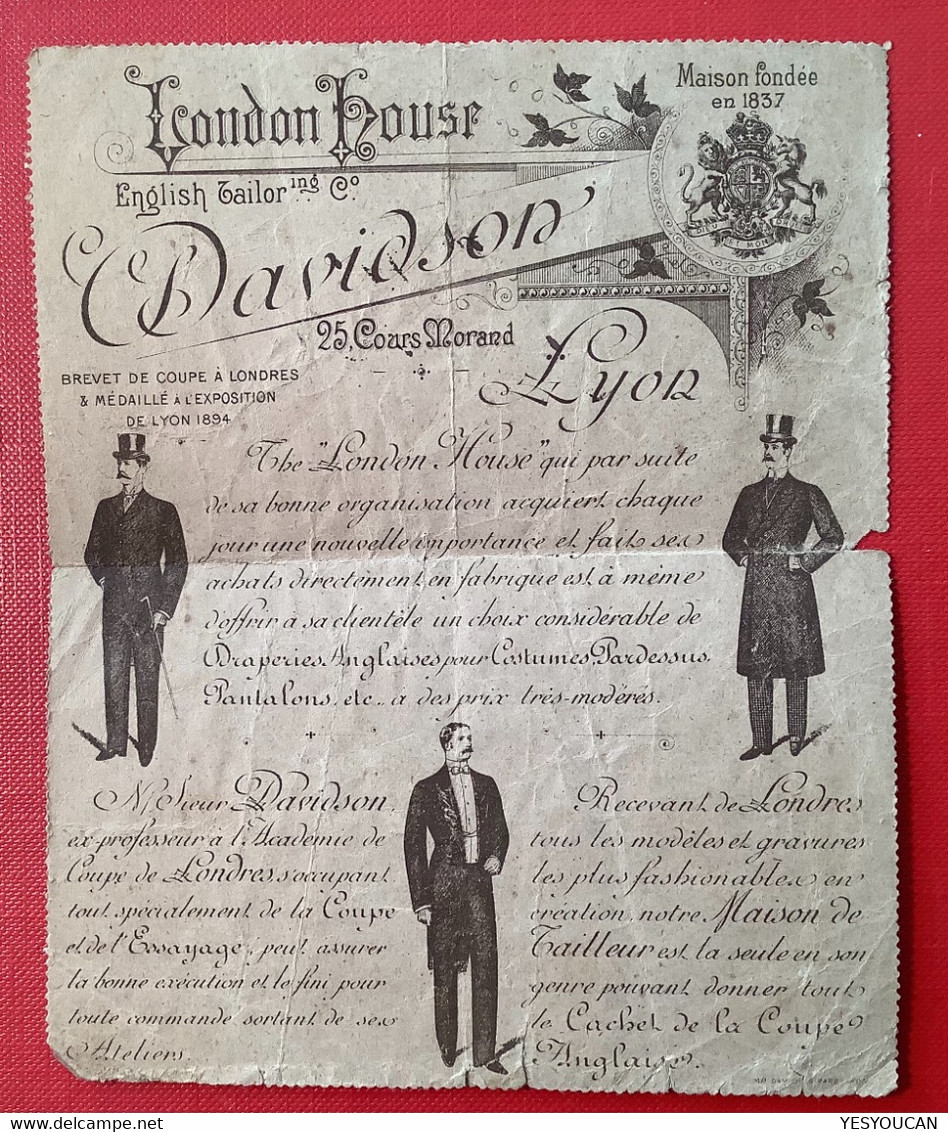 London House
Maison fondée
en 1837
English Tailor.ing Co.
Davidson
DIEU ET MON DROIT
25, Cours Morand
Lyon
BREVET DE COUPE À LONDRES
& MÉDAILLÉ À L'EXPOSITION
DE LYON 1894
The "London House" qui par suite
de sa bonne organisation acquiert chaque
jour une nouvelle importance et fait ses
achats directement en fabrique est à même
d'offrir à sa clientèle un choix considérable de
Draperies Anglaises pour Costumes, Pardessus,
Pantalons, etc., à des prix très-modérés.
M. Sieur Davidson,
ex-professeur à l'Academie de
Coupe de Londres s'occupant
tout spécialement de la Coupe
et de l'Essayage, peut assurer
la bonne exécution et le fini pour
toute commande sortant de ses
Ateliers.
Recevant de Londres
tous les modèles et gravures
les plus fashionables en
création, notre Maison de
Tailleur est la seule en son
genre pouvant donner tout
le Cachet de la Coupe
Anglaise.
YESYOUCAN
delcampe.net
YESYOUCAN